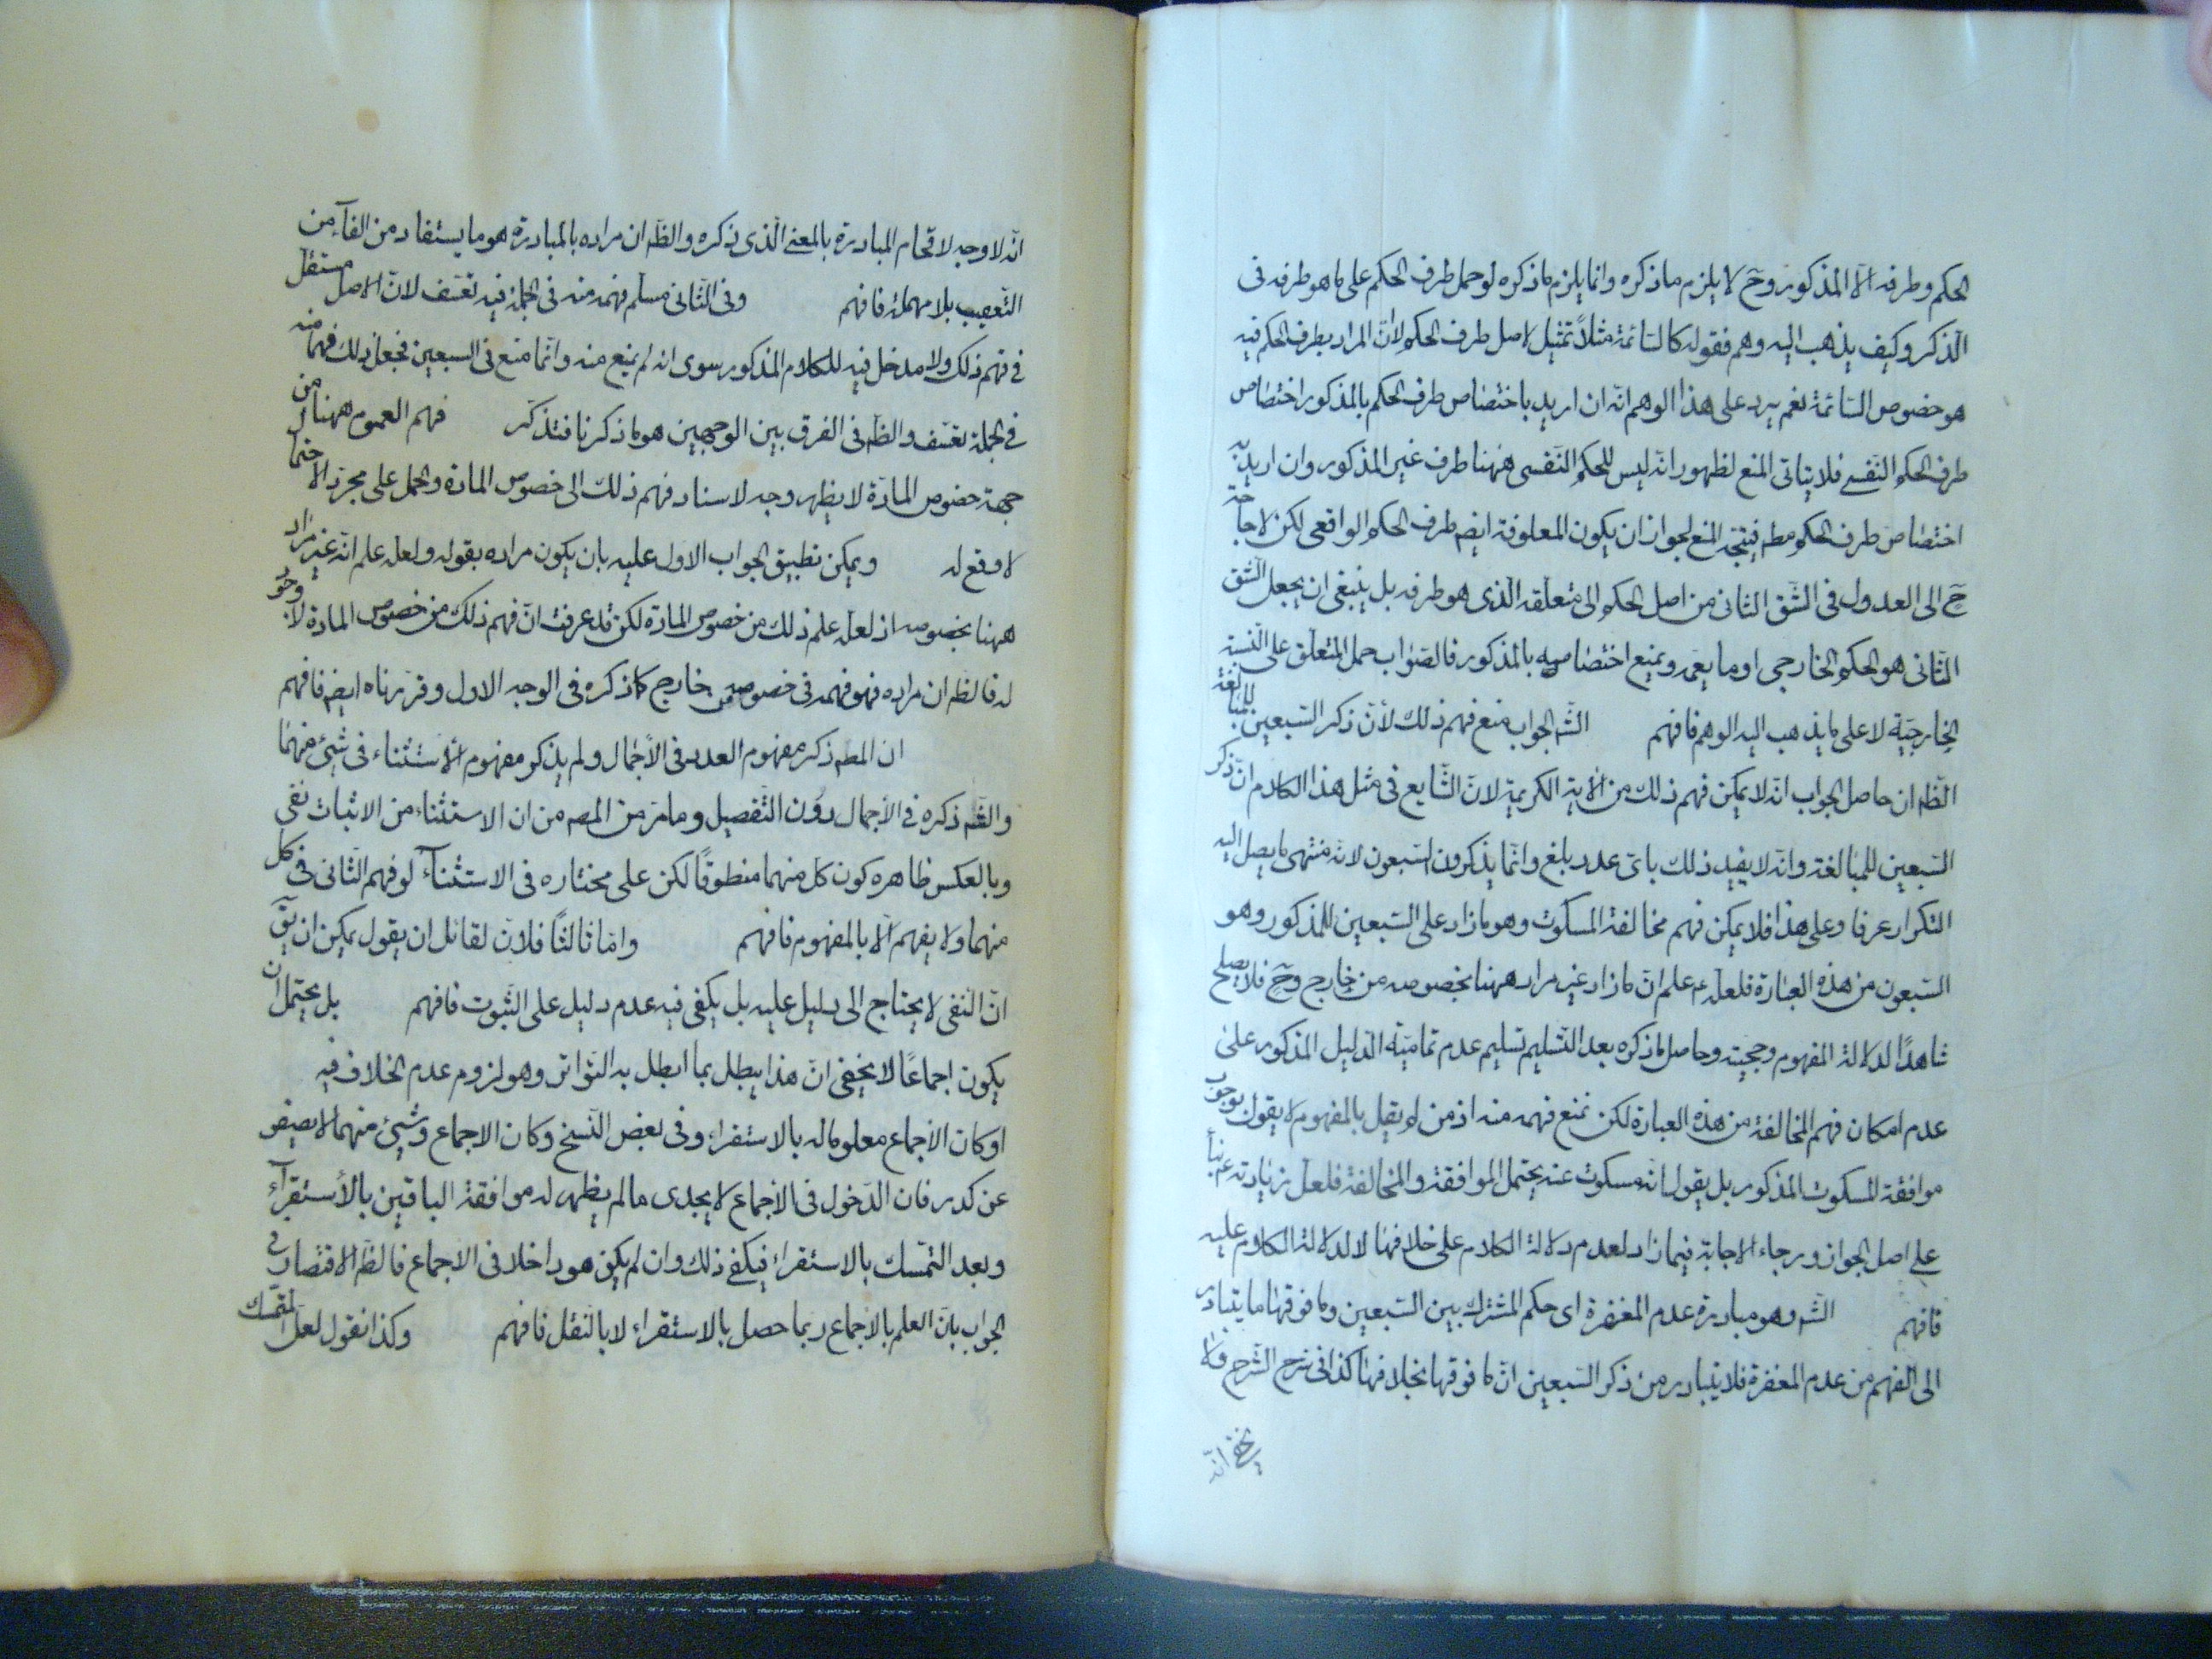 الحكم وطرفه الّا المذكور وحّ لا يلزم ما ذكره وانما يلزم ما ذكره لو حمل طرف الحكم على ما هو طرفه فى
الذكر وكيف يذهب اليه وهم فقوله كالسّائمة مثلاً تمثيل لاصل طرف الحكم لانّ المراد بطرف الحكم فيه
هو خصوص السّائمة نعم يرد على هذا الوهم انّه ان اريد باختصاص طرف الحكم بالمذكور اختصاص
طرف الحكم النّفسى فلا يتاتى المنع لظهور انّه ليس للحكم النّفسى ههنا طرف غير المذكور وان اريد به
اختصاص طرف الحكم مطم فيتجه المنع لجواز ان يكون المعلوفة ايضم طرف الحكم الواقعى لكن لا حاجة
حّ الى العدول فى الشّق الثانى من اصل الحكم الى متعلّقه الّذى هو طرفه بل ينبغى ان يجعل الشّق
الثّانى هو الحكم الخارجى او ما يعمه ويمنع اختصاصه بالمذكور فالصّواب حمل المتعلّق على النّسبة
الخارجيّة لا على ما يذهب اليه الوهم فافهم الشّه الجواب منع فهم ذلك لأنّ ذكر السّبعين للمبالغة
الظّه ان حاصل الجواب انّه لا يمكن فهم ذلك من الآية الكريمة لانّ الشّايع فى مثل هذا الكلام انّ ذكر
السّبعين للمبالغة وانّه لا يفيد ذلك باىّ عدد بلغ وانّما يذكرون السّبعون لانّه منتهى ما يصل اليه
التكرار عرفا وعلى هذا فلا يمكن فهم مخالفة المسكوت وهو ما زاد على السّبعين للمذكور وهو
السّبعون من هذه العبارة فلعلّه ع علم انّ ما زاد غير مراد ههنا بخصوصه من خارج وحّ فلا يصلح
شاهدًا لدلالة المفهوم وحجيته وحاصل ما ذكره بعد التّسليم تسليم عدم تماميّة الدّليل المذكور على
عدم امكان فهم المخالفة من هذه العبارة لكن نمنع فهمه منه اذ من لم يقل بالمفهوم لا يقول بوجوب
موافقة المسكوت المذكور بل يقول انّه مسكوت عنه يحتمل الموافقة والمخالفة فلعلّ زيادته ع بناء
على اصل الجواز ورجاء الاجابة فيما زاد لعدم دلالة الكلام على خلافها لا لدلالة الكلام عليه
فافهم الشّه وهو مبادرة عدم المغفرة اى حكم المشترك بين السّبعين وما فوقها ما يتبادر
الى الفهم من عدم المغفرة فلا يتبادر من ذكر السّبعين انّ ما فوقها بخلافها كذا فى شرح الشّرح ولا
يخفى انّه
انّه لا وجه لاقحام المبادرة بالمعنى الّذى ذكره والظّه ان مراده بالمبادرة هو ما يستفاد من الفآء من
التّعقيب بلا مهملة فافهم وفى الثّانى مسلم فهمه منه فى الجملة فيه تعسّف لانّ الاصل مستقلّ
فى فهم ذلك ولا مدخل فيه للكلام المذكور سوى انه لم يمنع منه وانّما منع فى السبعين فجعل ذلك فهما منه
فى الجملة تعسّف والظّه فى الفرق بين الوجهين هو ما ذكرنا فتذكّر فهم العموم ههنا من
جهة خصوص المادّة لا يظهر وجه لاسناد فهم ذلك الى خصوص المادة والحمل على مجرّد الاحتما
لا وقع له ويمكن تطبيق الجواب الاول عليه بان يكون مراده بقوله ولعله علم انّه غير مراد
ههنا بخصوصه انّ لعلّه علم ذلك من خصوص المادة لكن قد عرفت انّ فهم ذلك من خصوص المادة لا وجه
له فالظه ان مراده فهو فهمه فى خصوصه من خارج كما ذكره فى الوجه الاول وقررناه ايضم فافهم
ان المطم ذكر مفهوم العدد فى الأجمال ولم يذكر مفهوم الأستثناء فى شىء منهما
والظّه ذكره فى الأجمال دون التّفصيل وما مرّ من المصه من ان الاستثناء من الاثبات نفى
وبالعكس ظاهره كون كلّ منهما منطوقًا لكن على مختاره فى الاستثنآء لو فهم الثّانى فى كل
منهما ولا يفهم الّا بالمفهوم فافهم وامّا ثالثًا فلانّ لقائل ان يقول يمكن ان يقّ
انّ النّفى لا يحتاج الى دليل عليه بل يكفى فيه عدم دليل على الثّبوت فافهم بل يحتمل ان
يكون اجماعًا لا يخفى انّ هذا يبطل بما ابطل به التّواتر وهو لزوم عدم الخلاف فيه
او كان الأجماع معلوما له بالاستقراء وفى بعض النّسخ وكان الاجماع وشىء منهما لا يصفو
عن كدر فان الدّخول فى الأجماع لا يجدى ما لم يظهر له موافقة الباقين بالأستقرآء
وبعد التّمسّك بالاستقراء فيكفى ذلك وان لم يكن هو داخلا فى الاجماع فالظّه الاقتصار فى
الجواب بانّ العلم بالاجماع ربما حصل بالاستقراء لا بالنّقل فافهم وكذا نقول لعلّ المتمسّك